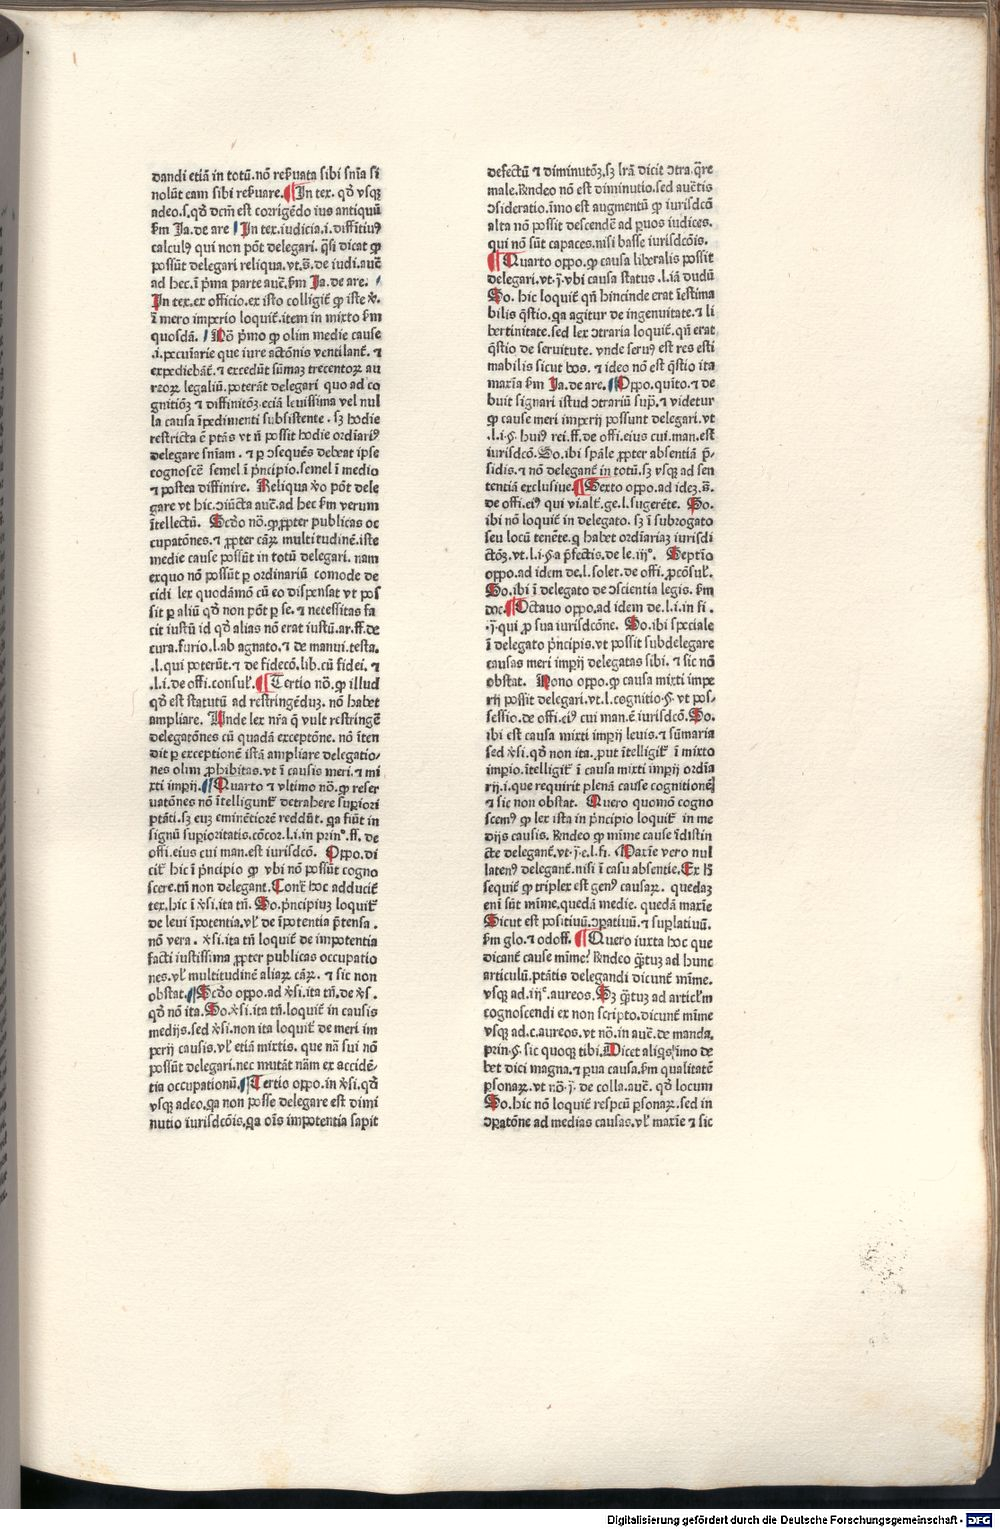 dandi etiā in totū.nō rekuata sibi snīa si
nolūt eam sibi rekuare.¶In tex. qđ vsqꝫ
adeo.s.qđ dcm̄ est corrigēdo ius antiquū
km Ja.de are In tex.iudicia.i.diffītiuꝰ
calculꝰ qui non pōt delegari. q̄si dicat ꝙ
possūt delegari reliqua.vt.s̄.de iudi.auc̄
ad hec.ī pīna parte auc̄.km Ja.de are.
In tex.ex officio.ex isto colligit̄ ꝙ iste ꝟ.
ī mero imperio loquit̄.item in mixto km
quosdā. Nō pīmo ꝙ olim medie cause
.i.pecuīarie que iure actōnis ventilant̄. ⁊
expediebāt̄.⁊ excedūt sūmaꝫ trecentoꝝ au
reoꝝ legaliū.poterāt delegari quo ad co
gnitiōꝫ ⁊ diffinitōꝫ.eciā leuissima vel nul
la causa īpedimenti subsistente. sꝫ hodie
restricta ē ptās vt ñ possit hodie ordīariꝰ
delegare snīam. ⁊ ꝑ ↄsequēs debeat ipse
cognoscē semel ī pīncipio.semel ī medio
⁊ postea diffinire. Reliqua ꝟo pōt dele
gare vt hic.ↄiūcta auc̄.ad hec km verum
ītellectū. Scđo nō.ꝙ ꝓpter publicas oc
cupatōnes.⁊ ꝓpter cāꝝ multitudinē.iste
medie cause possūt in totū delegari. nam
exquo nō possūt ꝑ ordinariū comode de
cidi lex quodāmō cū eo dispensat vt pos
sit ꝑ aliū qđ non pōt ꝑ se.⁊ necessitas fa
cit iustū id qđ alias nō erat iustū.ar.ff.de
cura.furio.l.ab agnato.⁊ de manui.testa.
.l.qui poterūt.⁊ de fidecō.lib.cū fidei. ⁊
.l.i.de offi.consul̄.¶Tertio nō.ꝙ illud
qđ est statutū ad restringēduꝫ. nō habet
ampliare. Unde lex nr̄a q̄ vult restringē
delegatōnes cū quadā exceptōne. nō īten
dit ꝑ exceptionē istā ampliare delegatio
nes olim ꝓhibitas.vt ī causis meri.⁊ mi
xti impīj.¶Quarto ⁊ vltimo nō.ꝙ reser
uatōnes nō ītelligunt̄ detrahere supiori
ptāti.sꝫ euꝫ eminētiorē reddūt.qa fiūt in
signū supioritatis.cōcor.l.i.in prin°.ff. de
offi.eius cui man.est iurisdcō. Oppo.di
cit̄ hic ī pīncipio ꝙ vbi nō possūt cogno
scere.tn̄ non delegant.Cont̄ hoc adducit̄
tex.hic ī ꝟsi.ita tn̄. So.pīncipiuꝫ loquit̄
de leui īpotentia.vl̄ de īpotentia p̄tensa.
nō vera. ꝟsi.ita tn̄ loquit̄ de impotentia
facti iustissima ꝓpter publicas occupatio
nes.vl̄ multitudinē aliaꝝ cāꝝ. ⁊ sic non
obstat.¶Scđo oppo.ad ꝟsi.ita tn̄.de ꝟs.
qđ nō ita.So.ꝟsi.ita tn̄.loquit̄ in causis
medijs.sed ꝟsi.non ita loquit̄ de meri im
perij causis.vl̄ etiā mixtis. que nā sui nō
possūt delegari.nec mutāt nām ex accidē
tia occupationū.¶Tertio oppo.in ꝟsi.qđ
vsqꝫ adeo.qa non posse delegare est dimi
nutio iurisdcōis.qa oīs impotentia sapit
defectū ⁊ diminutōꝫ.sꝫ lrā dicit ↄtra.q̄re
male.Rn̄deo nō est diminutio.sed auc̄tis
ↄsideratio.īmo est augmentū ꝙ iurisdcō
alta nō possit descendē ad paruos iudices.
qui nō sūt capaces.nisi basse iurisdcōis.
¶Quarto oppo.ꝙ causa liberalis possit
delegari.vt.j̄.vbi causa status .l.iā dudū
So. hic loquit̄ qn̄ hincinde erat īestima
bilis q̄stio.qa agitur de ingenuitate.⁊ li
bertinitate.sed lex ↄtraria loquit̄.qn̄ erat
q̄stio de seruitute. vnde seruꝰ est res esti
mabilis sicut bos. ⁊ ideo nō est q̄stio ita
maxīa km Ja.de are.¶Oppo.quīto.⁊ de
buit signari istud ↄtrariū sup̄.⁊ videtur
ꝙ cause meri imperij possunt delegari.vt
.l.i.§. huiꝰ rei.ff.de offi.eius cui.man.est
iurisdcō.So.ibi spāle ꝓpter absentiā p̄
sidis.⁊ nō delegant̄ in totū.sꝫ vsqꝫ ad sen
tentiā exclusiue.¶Sexto oppo.ad ideꝫ.s̄.
de offi.eiꝰ qui vi.alt̄.ge.l.sugerēte. So.
ibi nō loquit̄ in delegato. sꝫ ī subrogato
seu locū tenēte.q habet ordīariaꝫ iurisdi
ctōꝫ.vt.l.i.§.a p̄fectis.de le.iij°. Septīo
oppo.ad idem de.l.solet.de offi.ꝓcōsul̄.
So.ibi ī delegato de ↄscientia legis. km
doc.¶Octauo oppo.ad idem de.l.i.in fi.
.j̄.qui ꝓ sua iurisdcōne. So.ibi speciale
ī delegato pīncipis.vt possit subdelegare
causas meri impīj delegatas sibi. ⁊ sic nō
obstat. Nono oppo.ꝙ causa mixti impe
rij possit delegari.vt.l.cognitio.§. vt pos
sessio.de offi.eiꝰ cui man.ē iurisdcō.So.
ibi est causa mixti impīj leuis.⁊ sūmaria
sed ꝟsi.qđ non ita.ꝓut ītelligit̄ ī mixto
impīo.ītelligit̄ ī causa mixti impīj ordīa
rij.i.que requirit plenā cause cognitionē
⁊ sic non obstat. Quero quomō cogno
scemꝰ ꝙ lex ista in pīncipio loquit̄ in me
dijs causis. Rn̄deo ꝙ mīme cause īdistin
cte delegant̄.vt.j̄.e.l.fi. Maxīe vero nul
latenꝰ delegant̄.nisi ī casu absentie.Ex h̄
sequit̄ ꝙ triplex est genꝰ causaꝝ. quedaꝫ
enī sūt mīme.quedā medie. quedā maxīe
Sicut est positiuū.ↄpatiuū.⁊ suplatiuū.
km glo.⁊ odoff.¶Quero iuxta hoc que
dicant̄ cause mīme? Rn̄deo q̄tuꝫ ad hunc
articulū.ptātis delegandi dicunt̄ mīme.
vsqꝫ ad.iijᶜ.aureos.Sꝫ q̄tuꝫ ad articl̄m
cognoscendi ex non scripto.dicunt̄ mīme
vsqꝫ ad.c.aureos.vt nō.in auc̄.de manda.
prin.§. sic quoqꝫ tibi.Dicet aliqs īmo de
bet dici magna.⁊ parua causa.km qualitatē
ꝑsonaꝝ.vt nō.j̄.de colla.auc̄. qđ locum
So.hic nō loquit̄ respcū ꝑsonaꝝ.sed in
ↄparatōne ad medias causas.vl̄ maxīe ⁊ sic
Digitalisierung gefördert durch die Deutsche Forschungsgemeinschaft - DFG